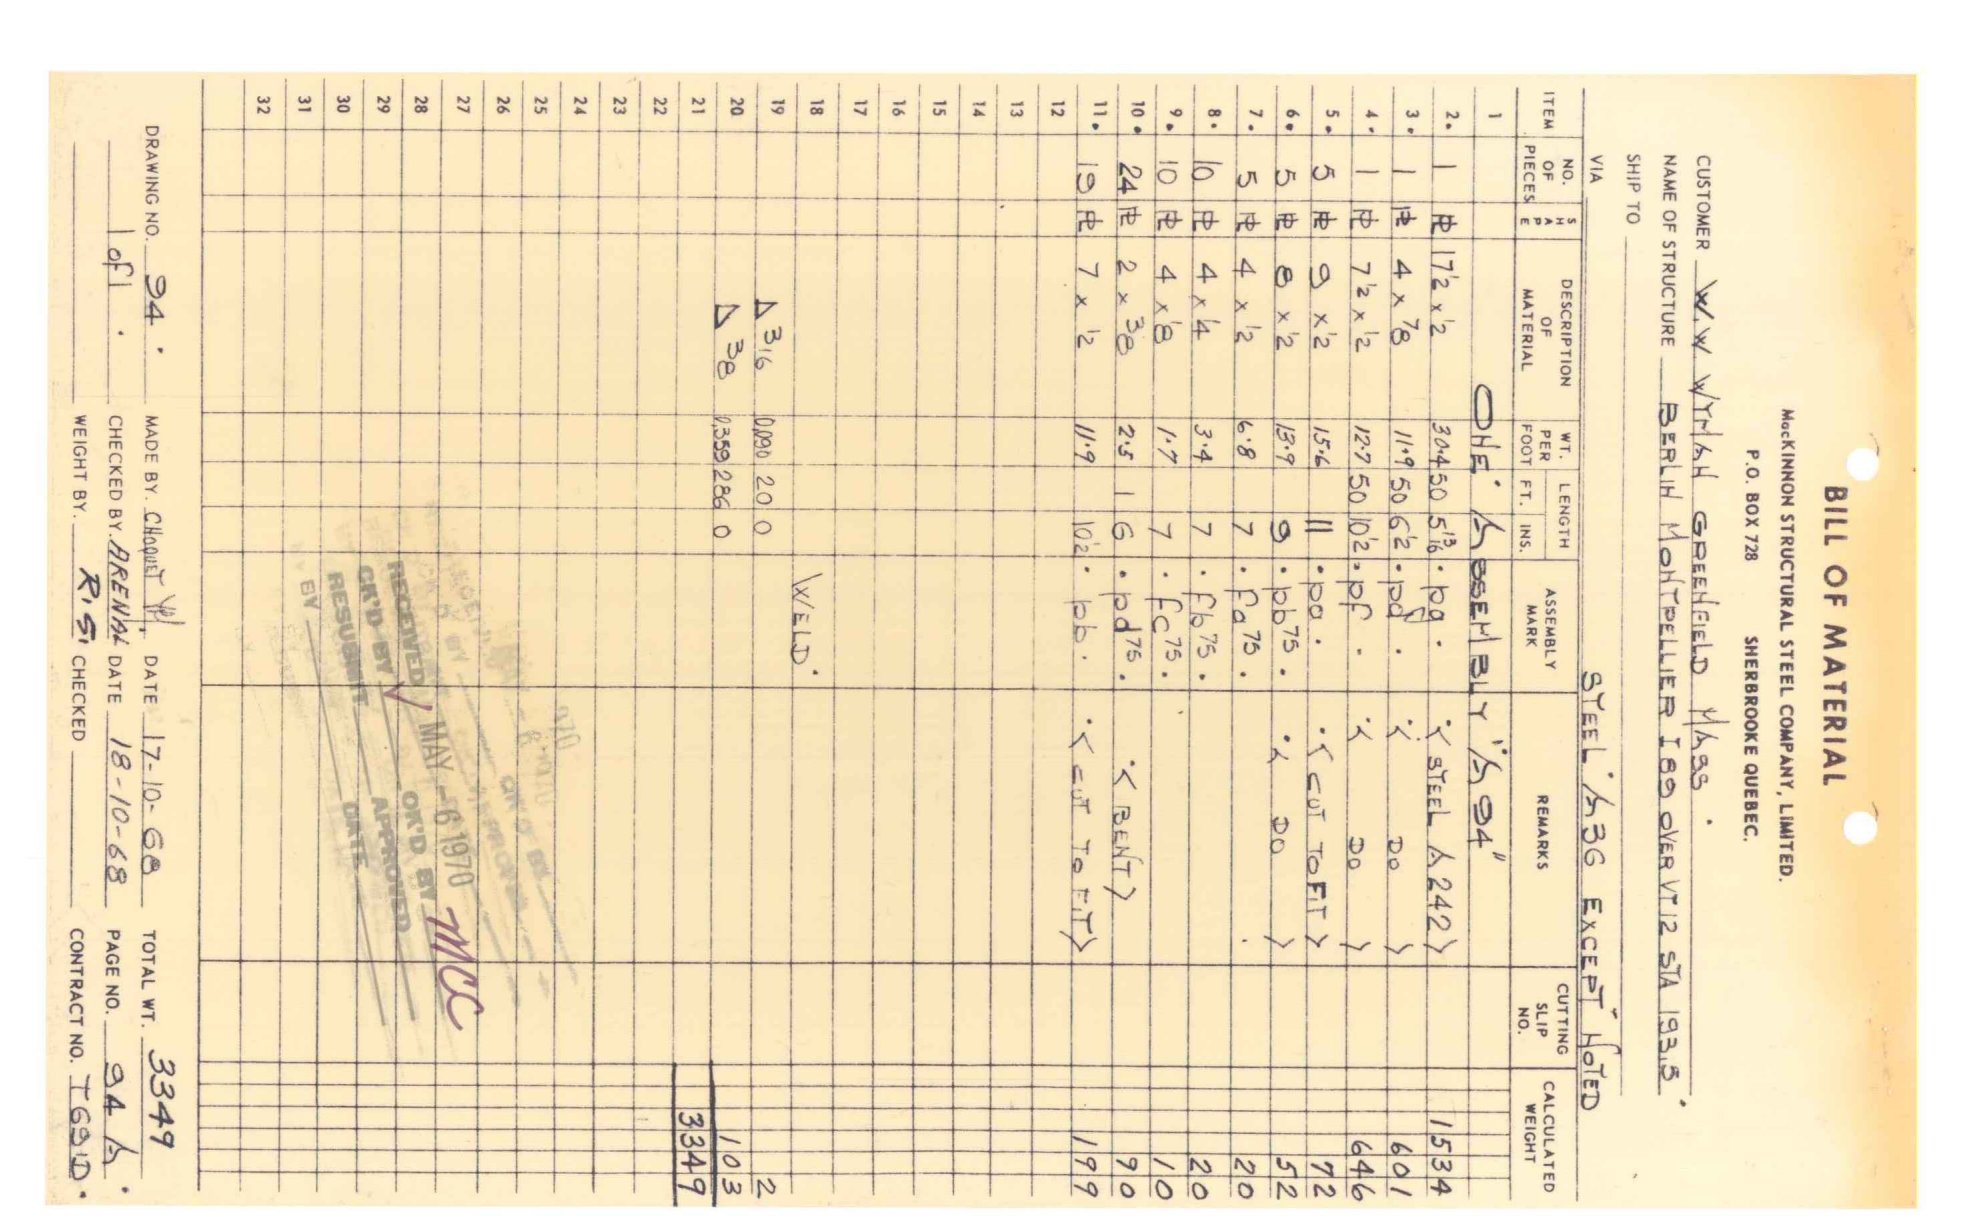 BILL OF MATERIAL
MacKINNON STRUCTURAL STEEL COMPANY, LIMITED.
P.O. BOX 728 SHERBROOKE QUEBEC.
CUSTOMER W.W. WYMAN GREENFIELD MASS.
NAME OF STRUCTURE BERLIN MONTPELLIER I 89 OVER VT 12 STA 193,5
SHIP TO
VIA STEEL A36 EXCEPT NOTED
ITEM NO. OF PIECES SHAPE DESCRIPTION OF MATERIAL WT. PER FOOT LENGTH FT. INS. ASSEMBLY MARK REMARKS CUTTING SLIP NO. CALCULATED WEIGHT
1 ONE ASSEMBLY "A94"
2. 1 PL 17 1/2 x 1/2 30.4 50 5 13/16 . pg . < STEEL A 242 > 1534
3. 1 PL 4 x 7/8 11.9 50 6 1/2 . < DO > 601
4. 1 PL 7 1/2 x 1/2 12.7 50 10 1/2 . pf . < DO > 646
5. 5 PL 9 x 1/2 15.6 11 . pa . < CUT TO FIT > 72
6. 5 PL 8 x 1/2 13.9 9 . pb75 . < DO > 52
7. 5 PL 4 x 1/2 6.8 7 . fa75 . 20
8. 10 PL 4 x 1/4 3.4 7 . fb75 . 20
9. 10 PL 4 x 1/8 1.7 7 . fc75 . 10
10. 24 PL 2 x 3/8 2.5 1 6 . pd75 . < BENT > 90
11. 19 PL 7 x 1/2 11.9 10 1/2 . pb . < CUT TO FIT > 199
12
13
14
15
16
17
18 WELD.
19 △ 3/16 0,090 20 0 2
20 △ 3/8 0,359 286 0 103
21 3349
22
23
24
25
26
27
28
29
30
31
32
RECEIVED MAY - 6 1970 OK'D BY MCC
CK'D BY APPROVED
RESUBMIT DATE
BY
DRAWING NO. 94. MADE BY. CHOQUET DATE 17-10-68 TOTAL WT. 3349
1 of 1. CHECKED BY. ARENAL DATE 18-10-68 PAGE NO. 94 A.
WEIGHT BY. R.S. CHECKED CONTRACT NO. T691D.